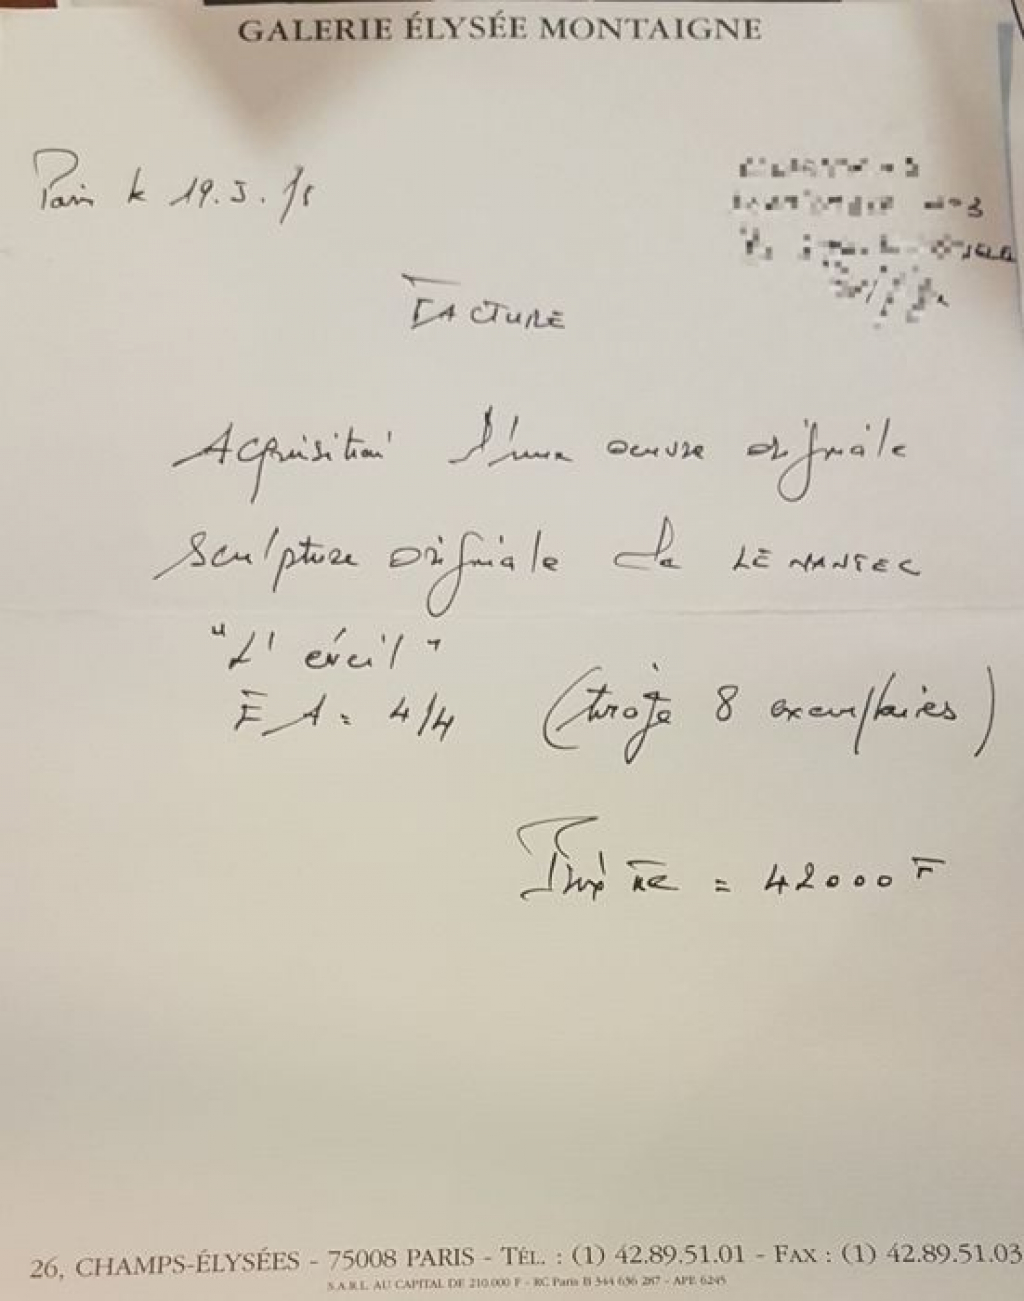 GALERIE ÉLYSÉE MONTAIGNE
Paris le 19.5.
FACTURE
Acquisition d'une oeuvre originale
sculpture originale de LE NANTEC
"L'éveil"
EA = 4/4 (tirage 8 exemplaires)
Prix = 42000 F
26, CHAMPS-ÉLYSÉES - 75008 PARIS - TÉL. : (1) 42.89.51.01 - FAX : (1) 42.89.51.03
S.A.R.L. AU CAPITAL DE 210.000 F - RC Paris B 344 636 287 - APE 6245